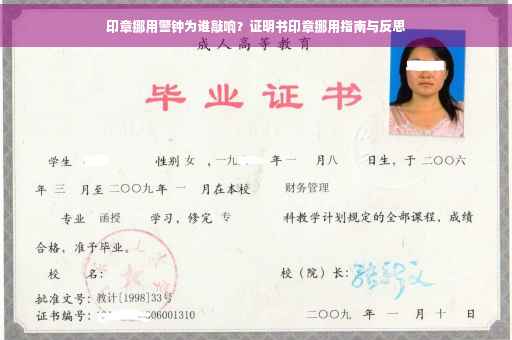 印章挪用警钟为谁敲响？证明书印章挪用指南与反思
成人高等教育
毕业证书
学生 性别 女 ，一九 年 一 月八 日生，于二〇〇六
年 三 月至二〇〇九年 一 月在本校 财务管理
专业 函授 学习，修完 专 科教学计划规定的全部课程，成绩
合格，准予毕业。
校 名： 校（院）长：
批准文号：教计[1998]33号
证书编号： 06001310 二〇〇九 年 一 月 十 日